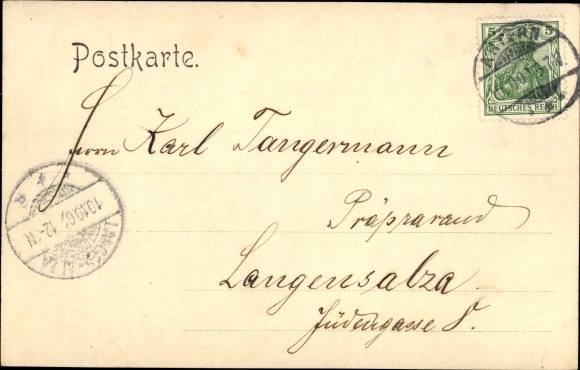 Postkarte.
5 5
DEUTSCHES REICH
Herrn Karl Tangermann
Präparand
Langensalza
Jüdengasse 8.
10.10.06 12-1N
LANGENSALZA